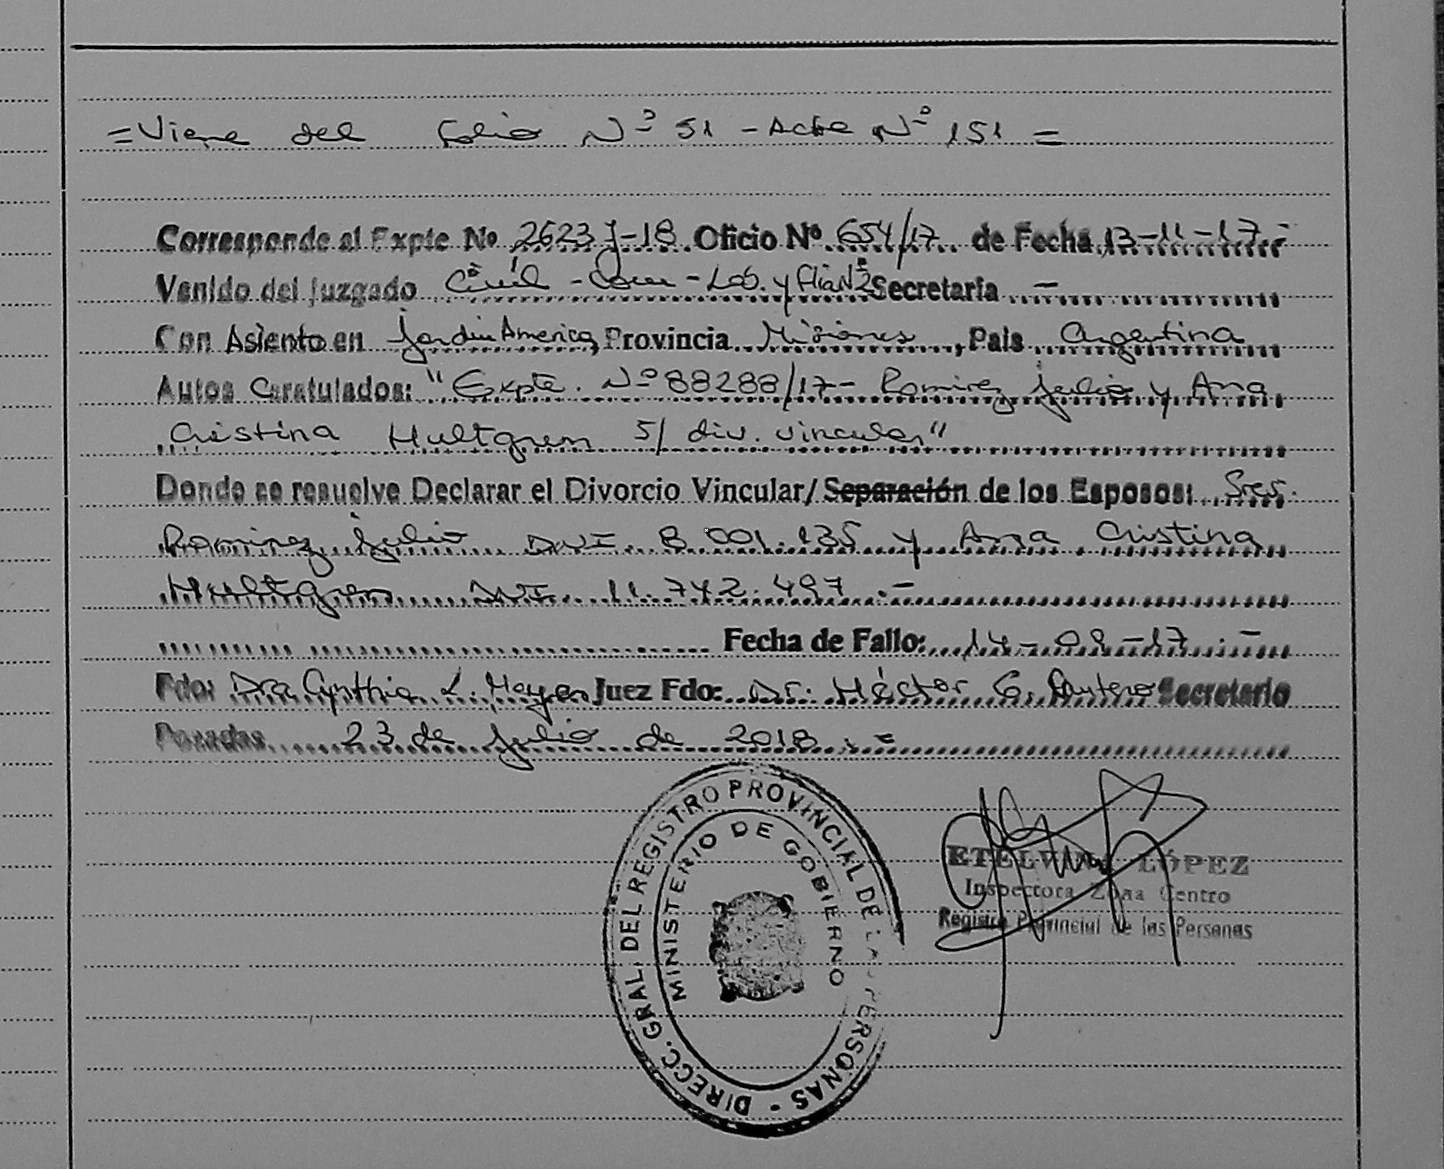 =Viene del folio Nº 51 - Acta Nº 151 =
Corresponde al Expte Nº 2623 J-18 Oficio Nº 654/17 de Fecha 13-11-17-
Venido del Juzgado Civil - Com - Lab. y Flia Nº2 Secretaría -
Con Asiento en Jardín America, Provincia Misiones, Pais Argentina
Autos Caratulados: "Expte. Nº 88288/17- Ramirez Julio y Ana
Cristina Hultgren S/ div. vincular"
Donde se resuelve Declarar el Divorcio Vincular/ Separación de los Esposos: Sres.
Ramirez Julio DNI. 8.001.135 y Ana Cristina
Hultgren DNI. 11.742.497.-
Fecha de Fallo: 14-08-17.-
Fdo: Dra. Cynthia L. Juez Fdo: Dr. Héctor G. Secretario
Posadas, 23 de Julio de 2018.=
DIRECC. GRAL. DEL REGISTRO PROVINCIAL DE LAS PERSONAS -
MINISTERIO DE GOBIERNO
ETELVINA LÓPEZ
Inspectora Zona Centro
Registro Provincial de las Personas